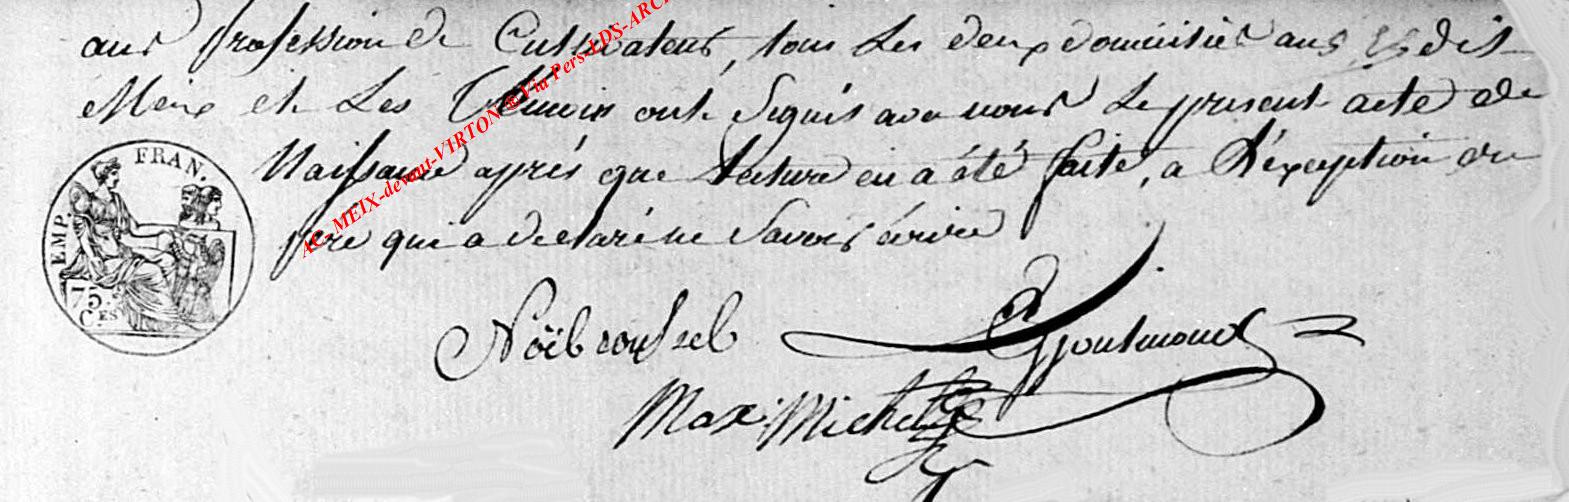 ans profession de Cultivateur, tous les deux domiciliés au dit
Meix et les Témoin ont signés avec nous le present acte de
Naissance après que lecture en a été faite, a l'éxception du
pere qui a declaré ne savoir écrire
EMP. FRAN.
75.
C.ES
AC-MEIX-devant-VIRTON ®Via Pers-LDS-ARC
Noël
Max. Michel